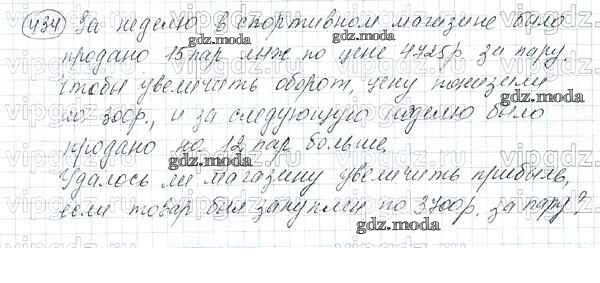 434 За неделю в спортивном магазине было
продано 15 пар лыж по цене 4725р. за пару.
Чтобы увеличить оборот, цену понизили
на 300р., и за следующую неделю было
продано на 12 пар больше.
Удалось ли магазину увеличить прибыль,
если товар был закуплен по 3700р. за пару?
gdz.moda
gdz.moda
gdz.moda
gdz.moda
gdz.moda
gdz.moda
gdz.moda
vipgdz.ru